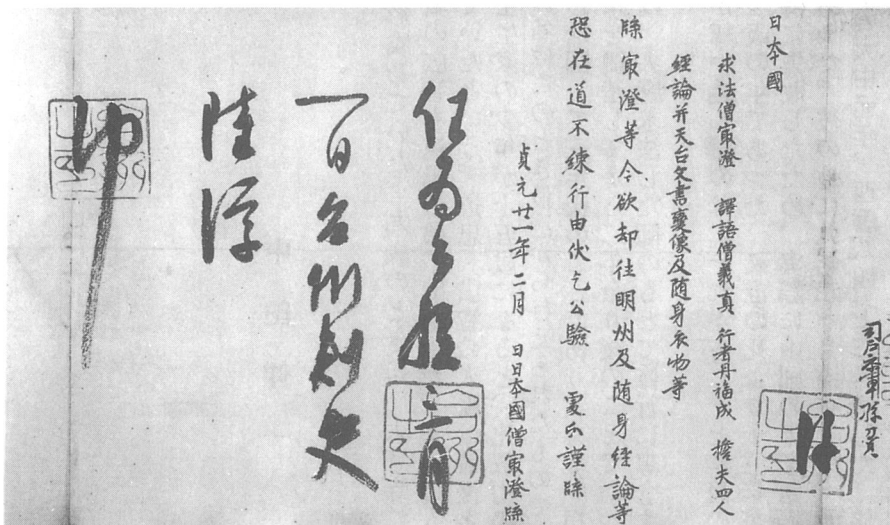 司戶參軍孫貢
日本國
求法僧寂澄 譯語僧義真 行者丹福成 擔夫四人
經論并天台文書變像及随身衣物等
牒寂澄等今欲却往明州及随身經論等
恐在道不練行由伏乞公驗 處分謹牒
貞元廿一年二月 日日本國僧寂澄牒
任為公驗三月
一日台州刺史
陸淳
印